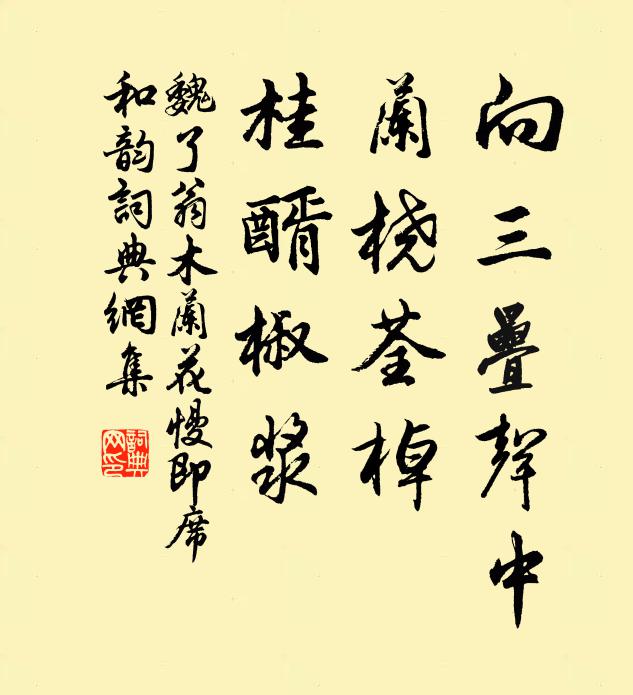 向三疊聲中
蘭桡荃棹
桂醑椒漿
魏了翁木蘭花慢即席
和韵詞典網集
詞典网印